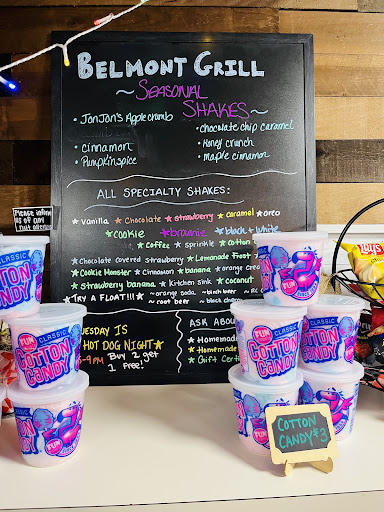 BELMONT GRILL
~SEASONAL SHAKES~
• JonJon's Applecrumb
• cinnamon
• Pumpkin spice
• chocolate chip caramel
• Honey crunch
• maple cinnamon
ALL SPECIALTY SHAKES:
★ vanilla ★ Chocolate ★ strawberry ★ caramel ★ oreo
★ cookie ★ brownie ★ black + white
★ coffee ★ sprinkle ★ cotton
★ Chocolate covered strawberry ★ Lemonade frost
★ Cookie Monster ★ Cinnamon ★ banana ★ orange crea
★ Strawberry banana ★ Kitchen sink ★ coconut
★ TRY A FLOAT!!! ★ ~ orange soda ~ birch beer
~ root beer ~ black cherry
UESDAY IS
HOT DOG NIGHT★
-9PM Buy 2 get
1 Free!
ASK ABOU
★ Homemade
★ Homemade
★ Gift Certi
Please inform
us of any
CLASSIC
COTTON
CANDY
CLASSIC
FUN
COTTON
CANDY
FUN
CLASSIC
FUN
COTTON
CANDY
CLASSIC
COTTON
CANDY
FUN
Lay's
COTTON
CANDY $3